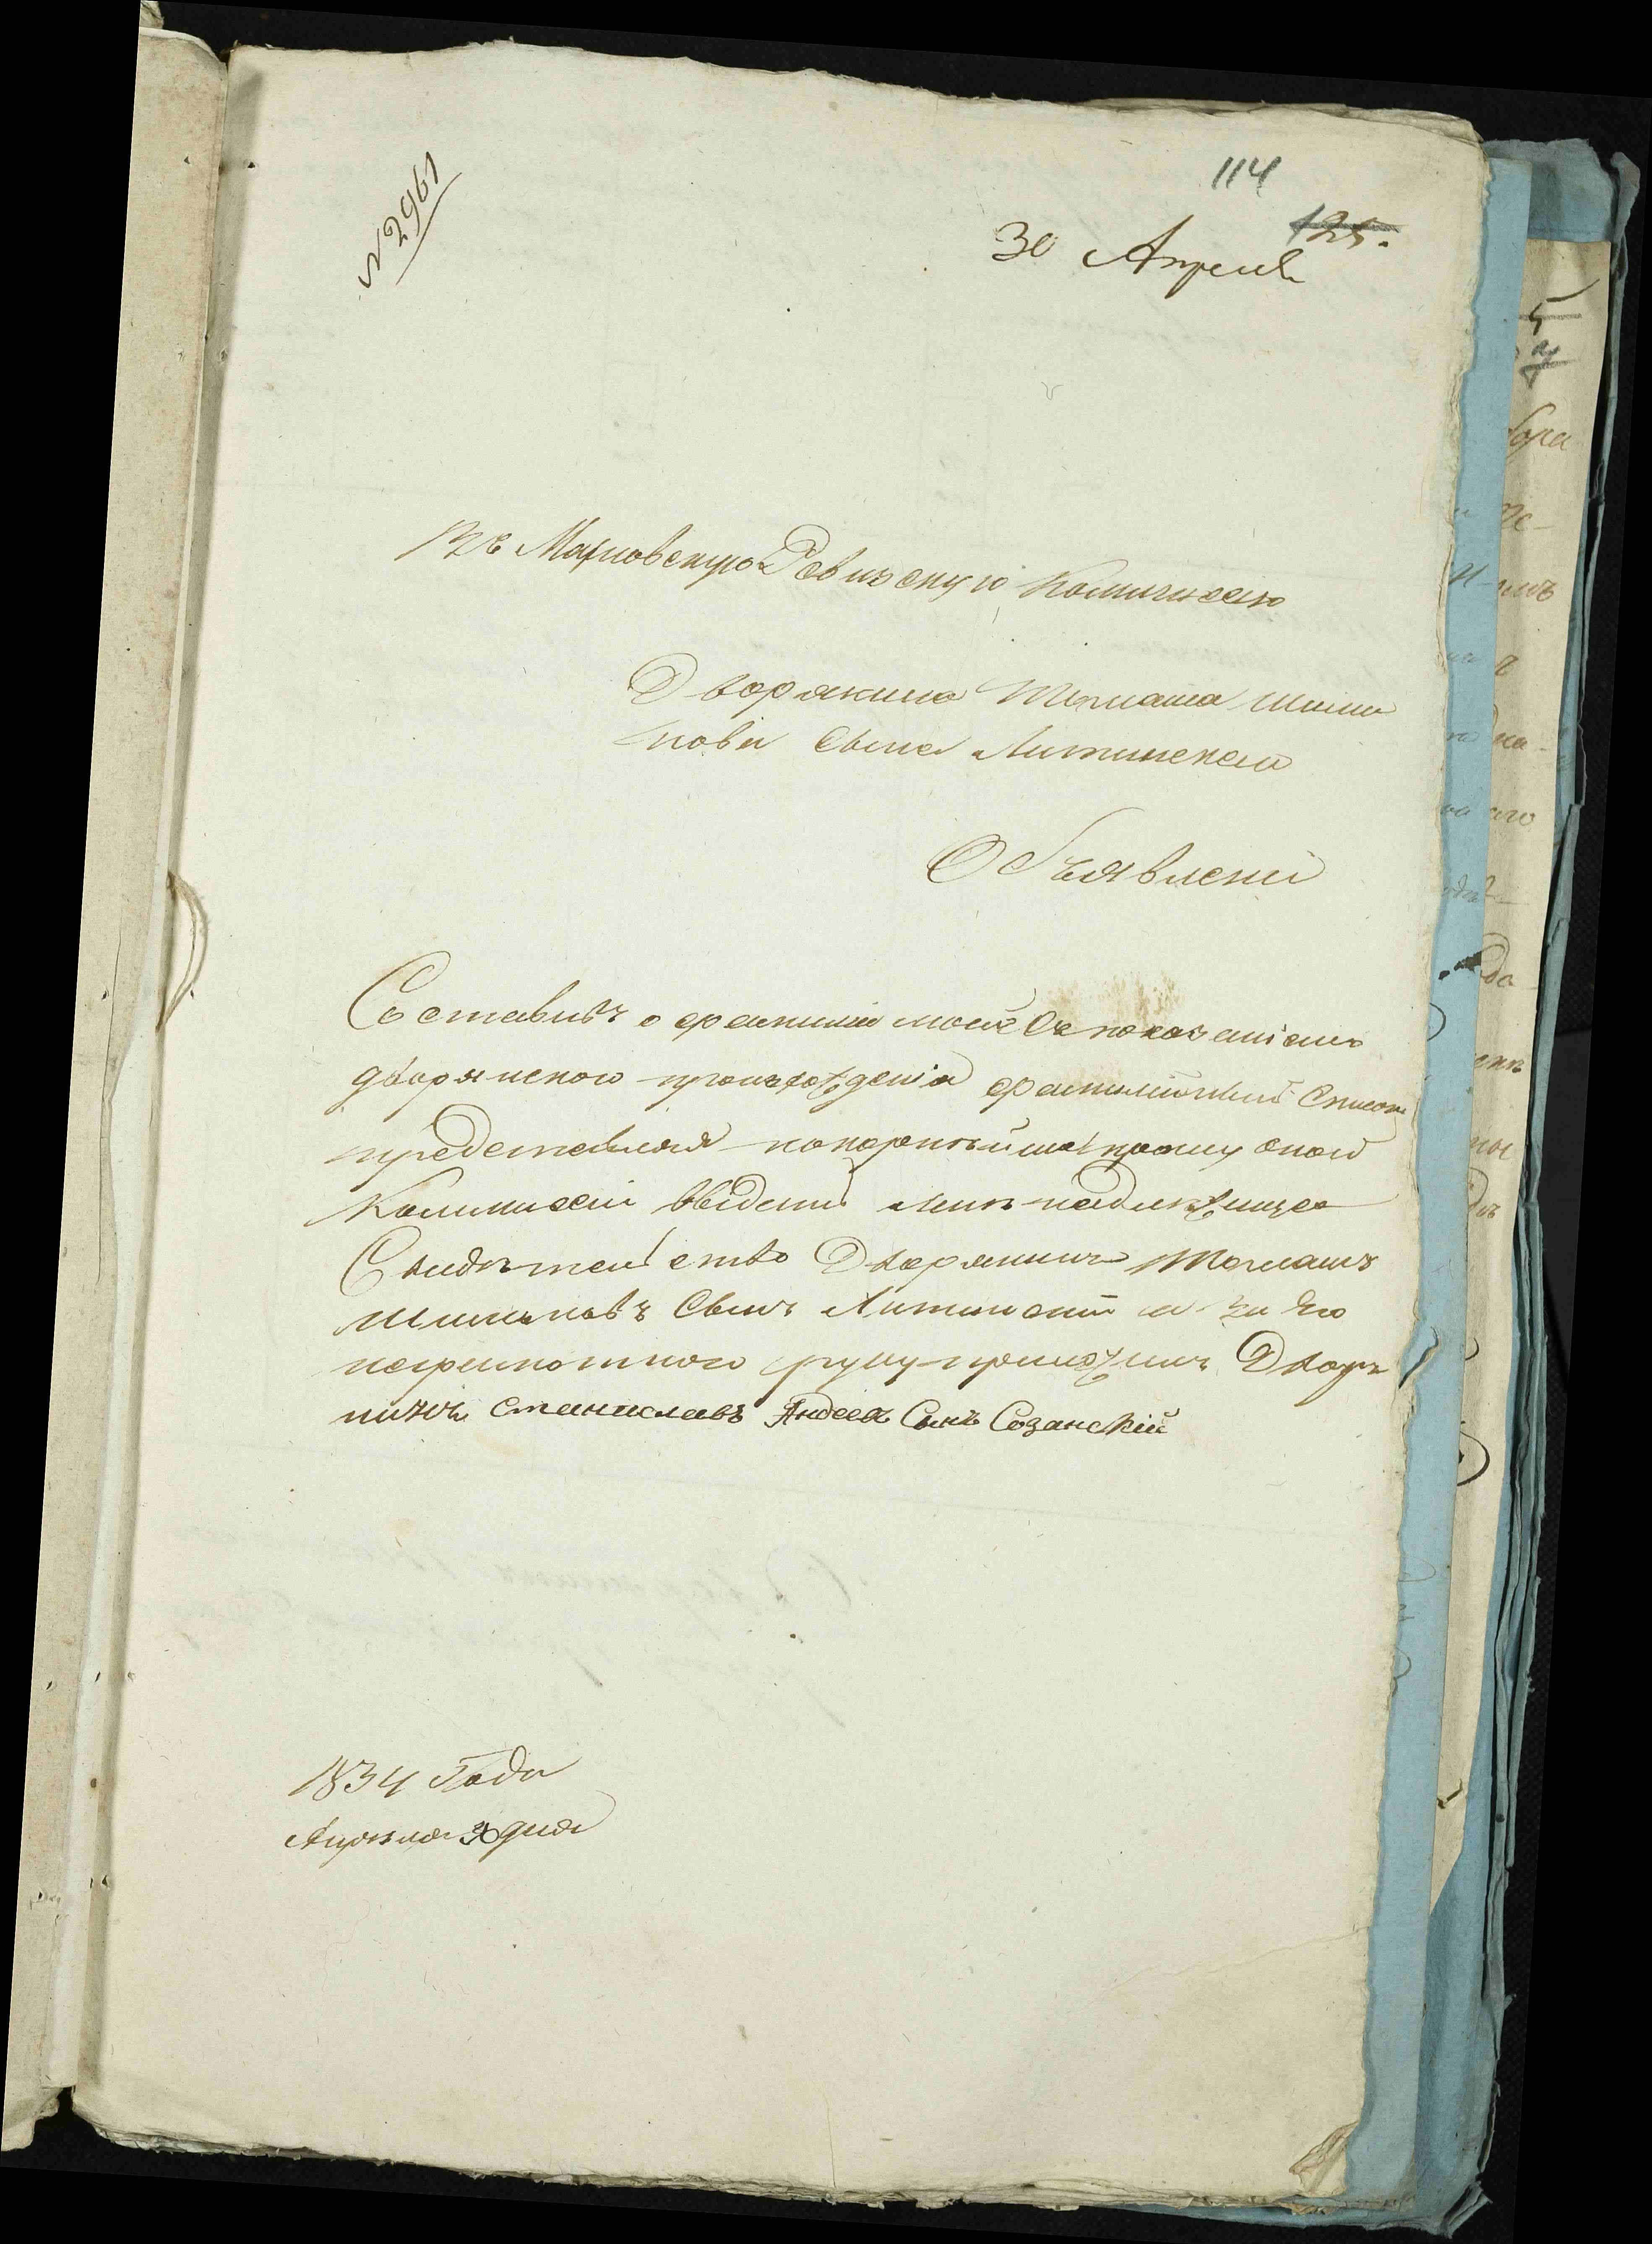 № 2961
114
125.
30 Апреля
Въ Махновскую Ревизскую Коммиссію
Дворянина Томаша Шима
нова Сына Литинскаго
Объявлени
Составивъ о фамилии моей Съ показаніемъ
дворянского происхожденія фамилійный Списокъ
представляя покорнѣйше прошу оной
Коммиссіи надлежущее
Свидѣтельство Дворянинъ Томашъ
Шимановъ Сынъ Литинскій а за Его
неграмотного руку приложилъ Дворя
нинъ Станиславъ Андеевъ Сынъ Созанскій
1834 Года
Апрѣля 30 дня